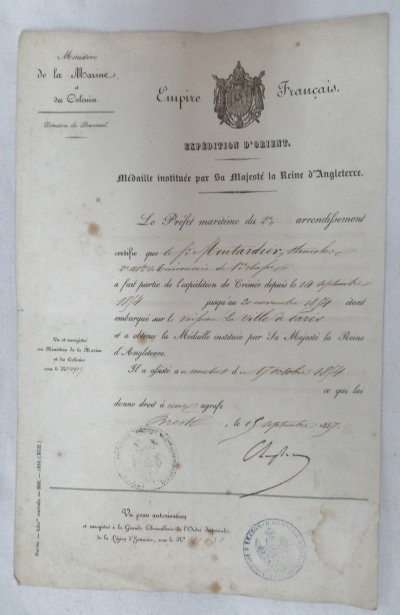 Ministère
de la Marine
et
des Colonies.
Direction du Personnel.
Empire Français.
EXPÉDITION D'ORIENT.
Médaille instituée par Sa Majesté la Reine d'Angleterre.
Le Préfet maritime du 2e arrondissement
certifie que le Sr Montardier, Stanislas
2e Mtre de de 1re classe
a fait partie de l'expédition de Crimée depuis le 14 septembre
1854 jusqu'au 20 novembre 1854 étant
embarqué sur le vaisseau la ville de Paris
et a obtenu la Médaille instituée par Sa Majesté la Reine
d'Angleterre.
Il a assisté au combat du 17 octobre 1854
ce qui lui
donne droit à une agrafe
Brest, le 15 septembre 1857.
Vu et enregistré
au Ministère de la Marine
et des Colonies
sous le No
Vu pour autorisation
et enregistré à la Grande Chancellerie de l'Ordre Impérial
de la Légion d'Honneur, sous le No